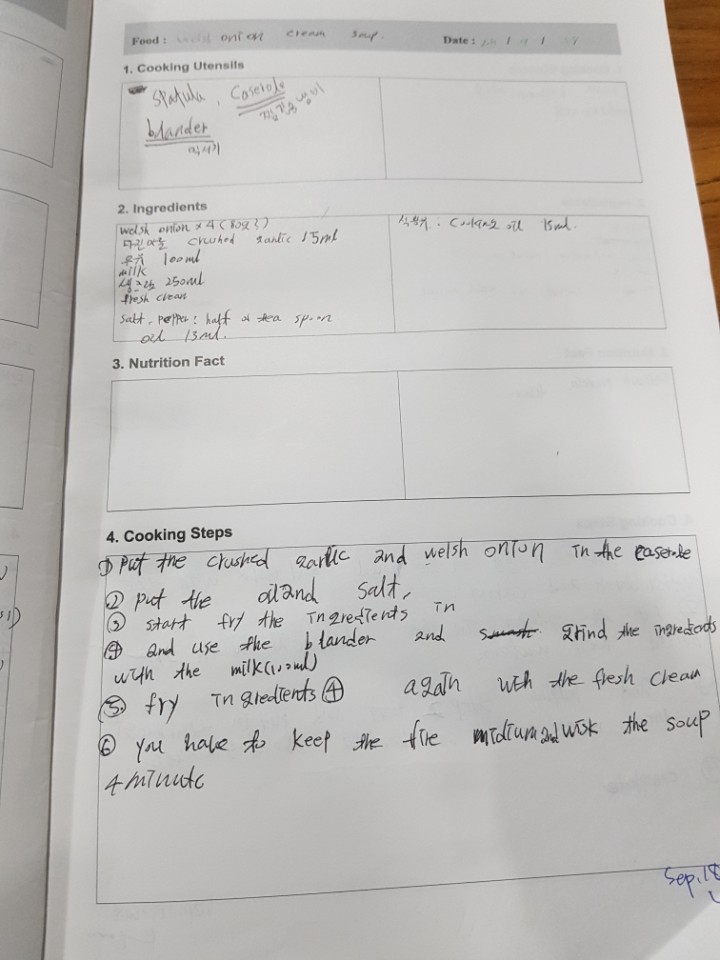 Food : Welsh onion cream soup.
Date : / 9 /
1. Cooking Utensils
Spatula, Caserole
blander
믹서기
2. Ingredients
welsh onion × 4
다진마늘 crushed garlic 15ml
우유 100ml
milk
생크림 250ml
fresh clean
salt, pepper : half a tea spoon
oil 15ml.
식용유 . Cooking oil 15ml.
3. Nutrition Fact
4. Cooking Steps
① put the crushed garlic and welsh onion in the caserole
② put the oil and salt,
③ start fry the ingredients in
④ and use the blander and grind the ingredients
with the milk(100ml)
⑤. fry ingredients ④ again with the fresh clean
⑥ you have to keep the fire midium and wisk the soup
4 minute
Sep.18